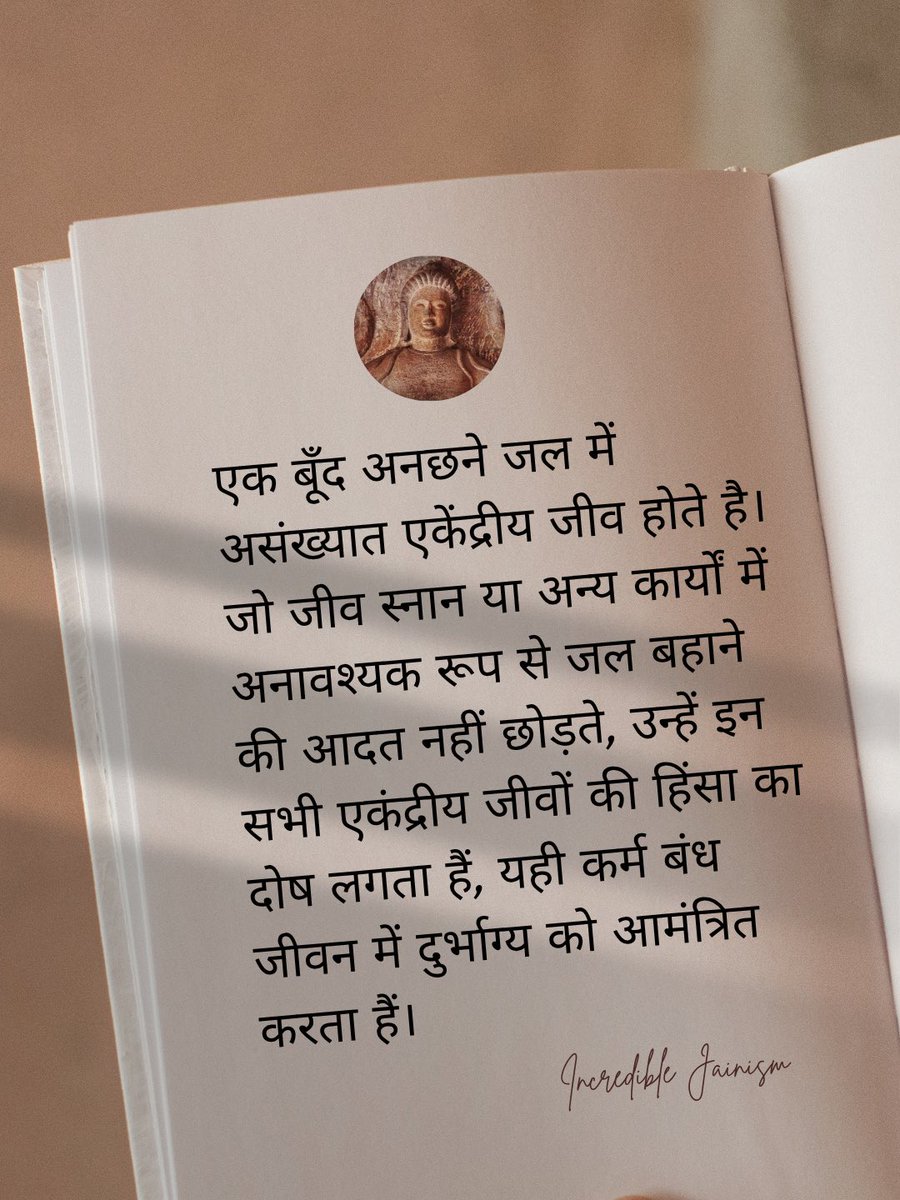 एक बूँद अनछने जल में
असंख्यात एकेंद्रीय जीव होते है।
जो जीव स्नान या अन्य कार्यों में
अनावश्यक रूप से जल बहाने
की आदत नहीं छोड़ते, उन्हें इन
सभी एकंद्रीय जीवों की हिंसा का
दोष लगता हैं, यही कर्म बंध
जीवन में दुर्भाग्य को आमंत्रित
करता हैं।
Incredible Jainism